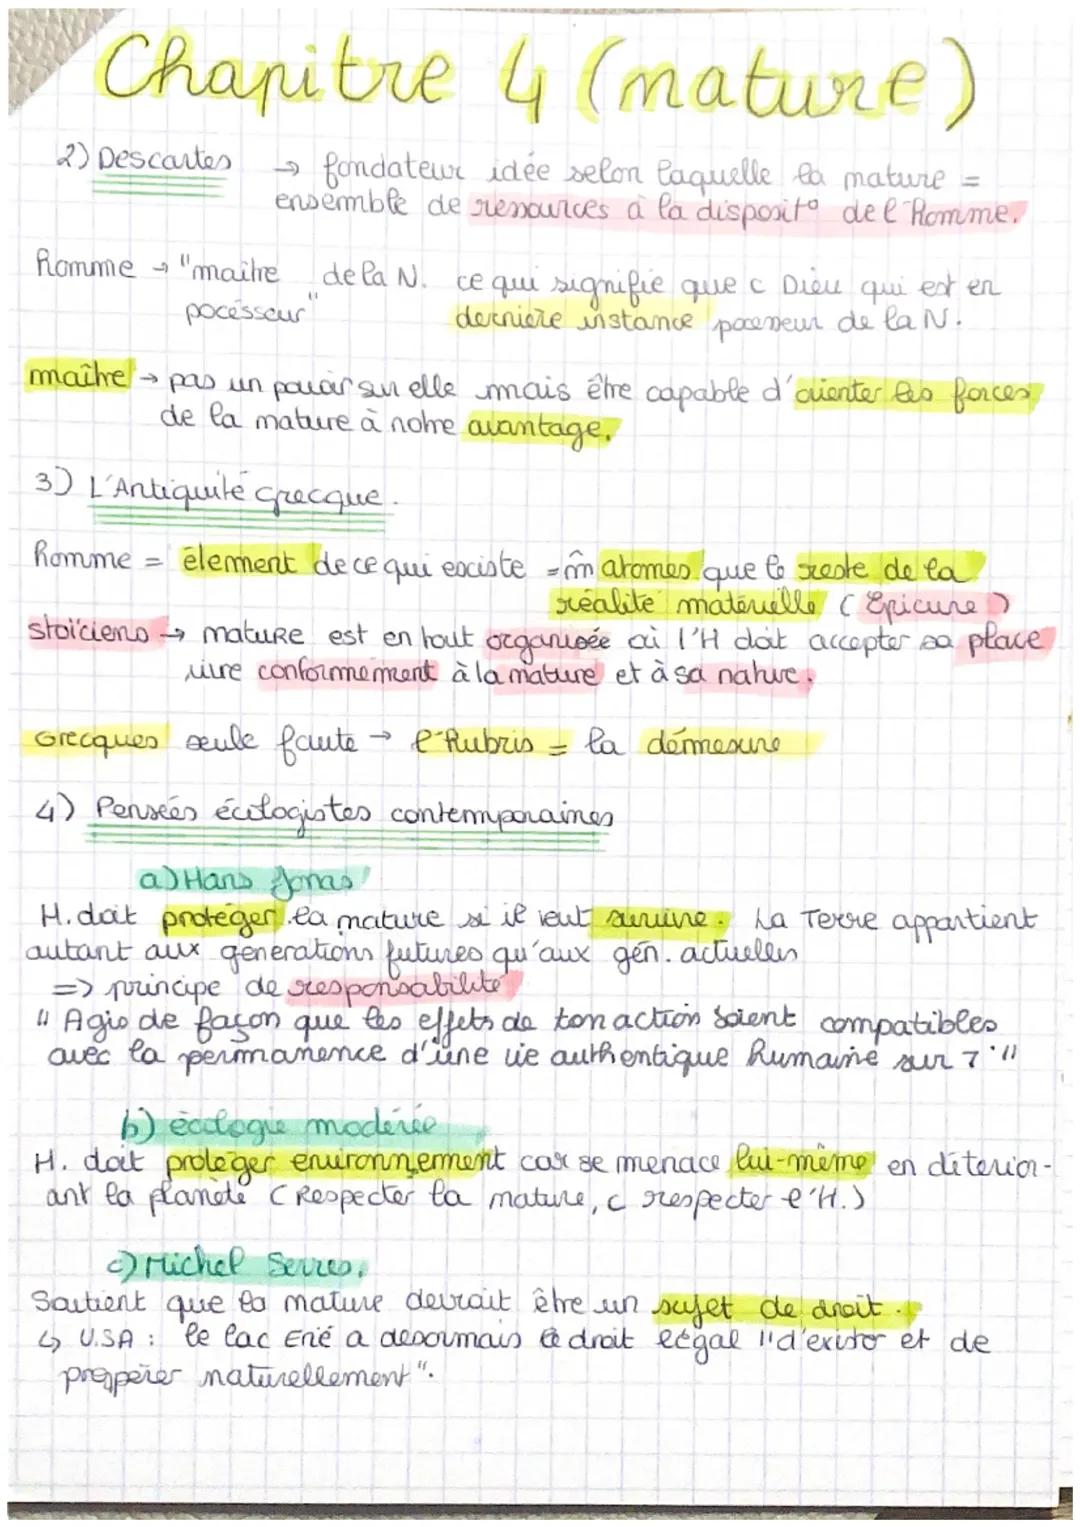 Chapitre 4 (nature)
2) Descartes → fondateur idée selon laquelle la nature =
ensemble de ressources à la disposit° de l'homme.
homme → "maître de la N. ce qui signifie que c Dieu qui est en
pocésseur" dernière instance possesseur de la N.
maître → pas un pouvoir sur elle mais être capable d'orienter les forces
de la nature à notre avantage.
3) L'Antiquité grecque.
homme = élement de ce qui existe = m̂ atomes que le reste de la
réalité matérielle (Epicure)
stoïciens → nature est en tout organisée où l'H doit accepter sa place
vivre conformément à la nature et à sa nature.
Grecques seule faute → l'hubris = la démesure
4) Pensées écologistes contemporaines
a) Hans Jonas
H. doit protéger la nature si il veut survivre. La Terre appartient
autant aux générations futures qu'aux gén. actuelles
=> principe de responsabilité
" Agis de façon que les effets de ton action soient compatibles
avec la permanence d'une vie authentique humaine sur T."
b) écologie modérée
H. doit protéger environnement car se menace lui-même en déterior-
ant la planète (Respecter la nature, c respecter l'H.)
c) Michel Serres.
Soutient que la nature devrait être un sujet de droit.
↳ U.S.A : le lac Erié a désormais le droit légal "d'exister et de
prospérer naturellement".